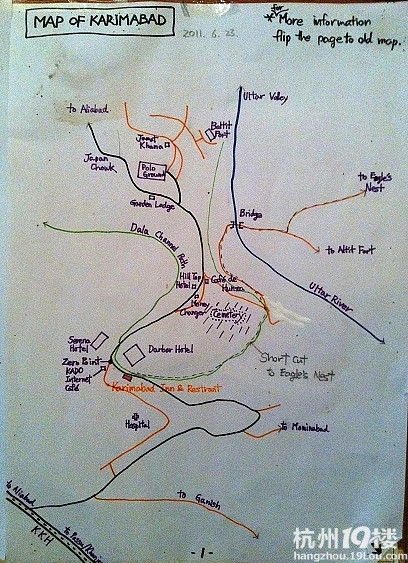 MAP OF KARIMABAD
2011. 6. 23.
for
* More information
flip the page to old map.
to Aliabad
Ultar Valley
Baltit
Fort
Jamat
Khana
Japan
Chowk
Polo
Ground
to Eagle's
Nest
Garden Lodge
Bridge
Dala Channel Path
to Altit Fort
Hill Top
Hotel
Café de
Hunza
Ultar River
Money
Changer
Cemetery
Serena
Hotel
Darbar Hotel
Short cut
to Eagle's Nest
Zero Point
KADO
Internet
Café
Karimabad Inn & Restrant
Hospital
to Mominabad
to Aliabad
to Ganish
KKH
-1-
杭州19楼
hangzhou.19lou.com